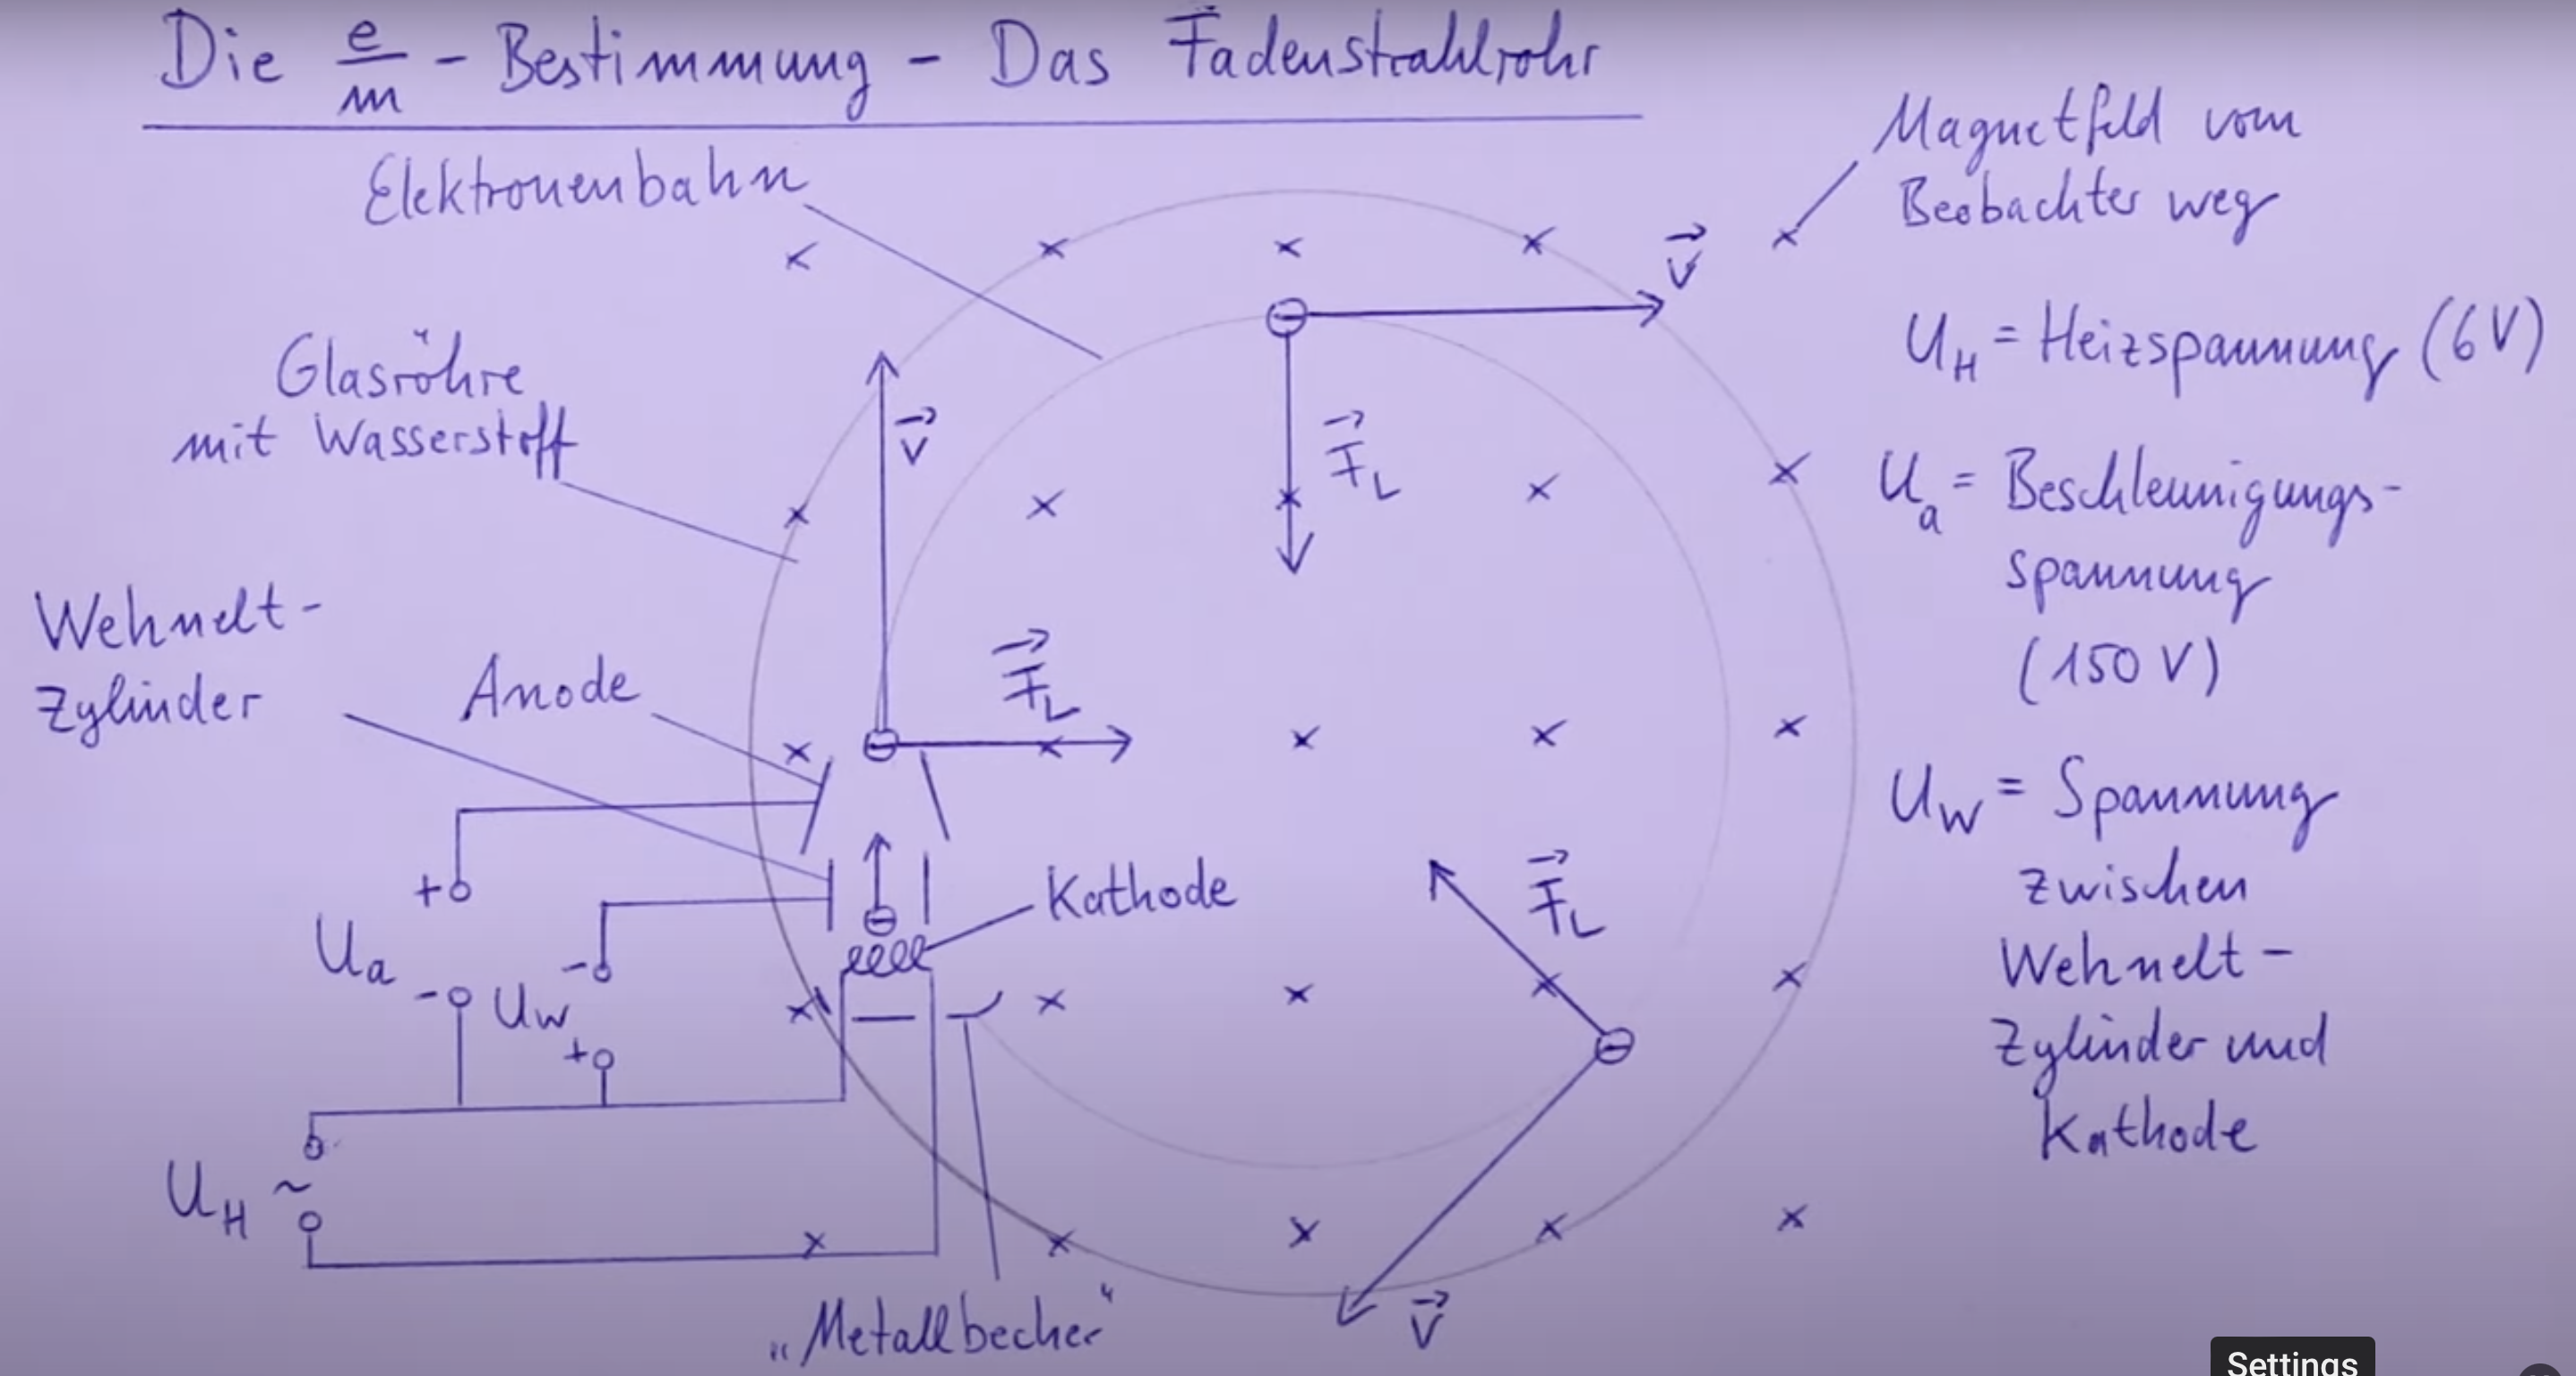 Die e/m - Bestimmung - Das Fadenstrahlrohr
Elektronenbahn
Magnetfeld vom
Beobachter weg
v
Glasröhre
mit Wasserstoff
v
F_L
U_H = Heizspannung (6V)
U_a = Beschleunigungs-
spannung
(150 V)
Wehnelt-
Zylinder
Anode
F_L
U_W = Spannung
zwischen
Wehnelt-
Zylinder und
Kathode
Kathode
F_L
+
U_a
-
-
U_W
+
U_H ~
„Metallbecher“
v
Settings